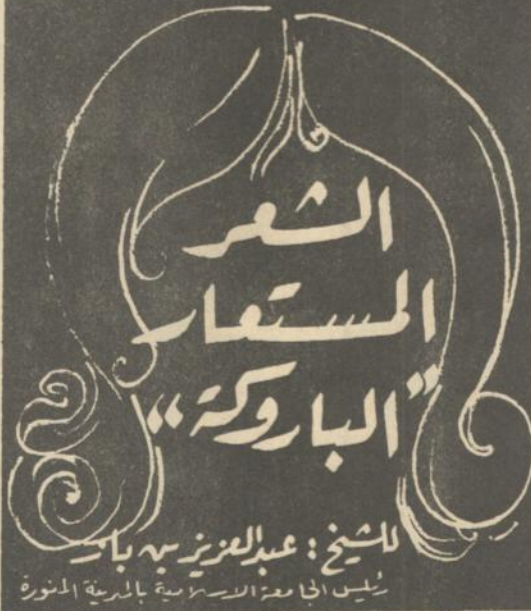 الشعر
المستعار
"الباروكة"
للشيخ: عبدالعزيز بن باز
رئيس الجامعة الاسلامية بالمدينة المنورة